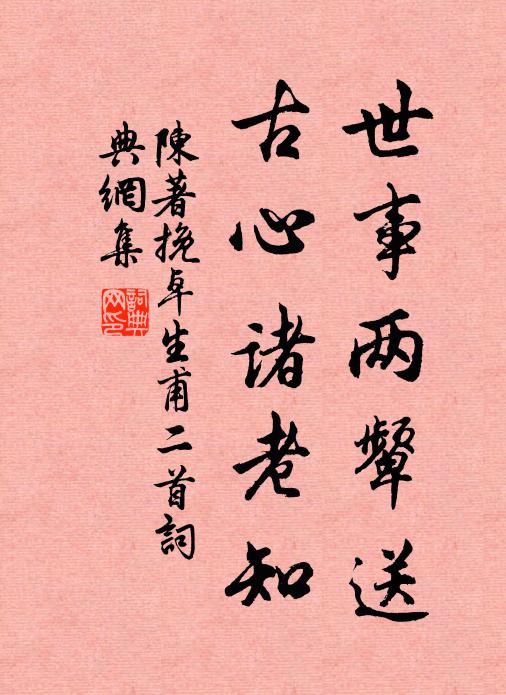 世事两颦送
古心诸老知
陳著挽卓生甫二首詞
典網集
詞典网印